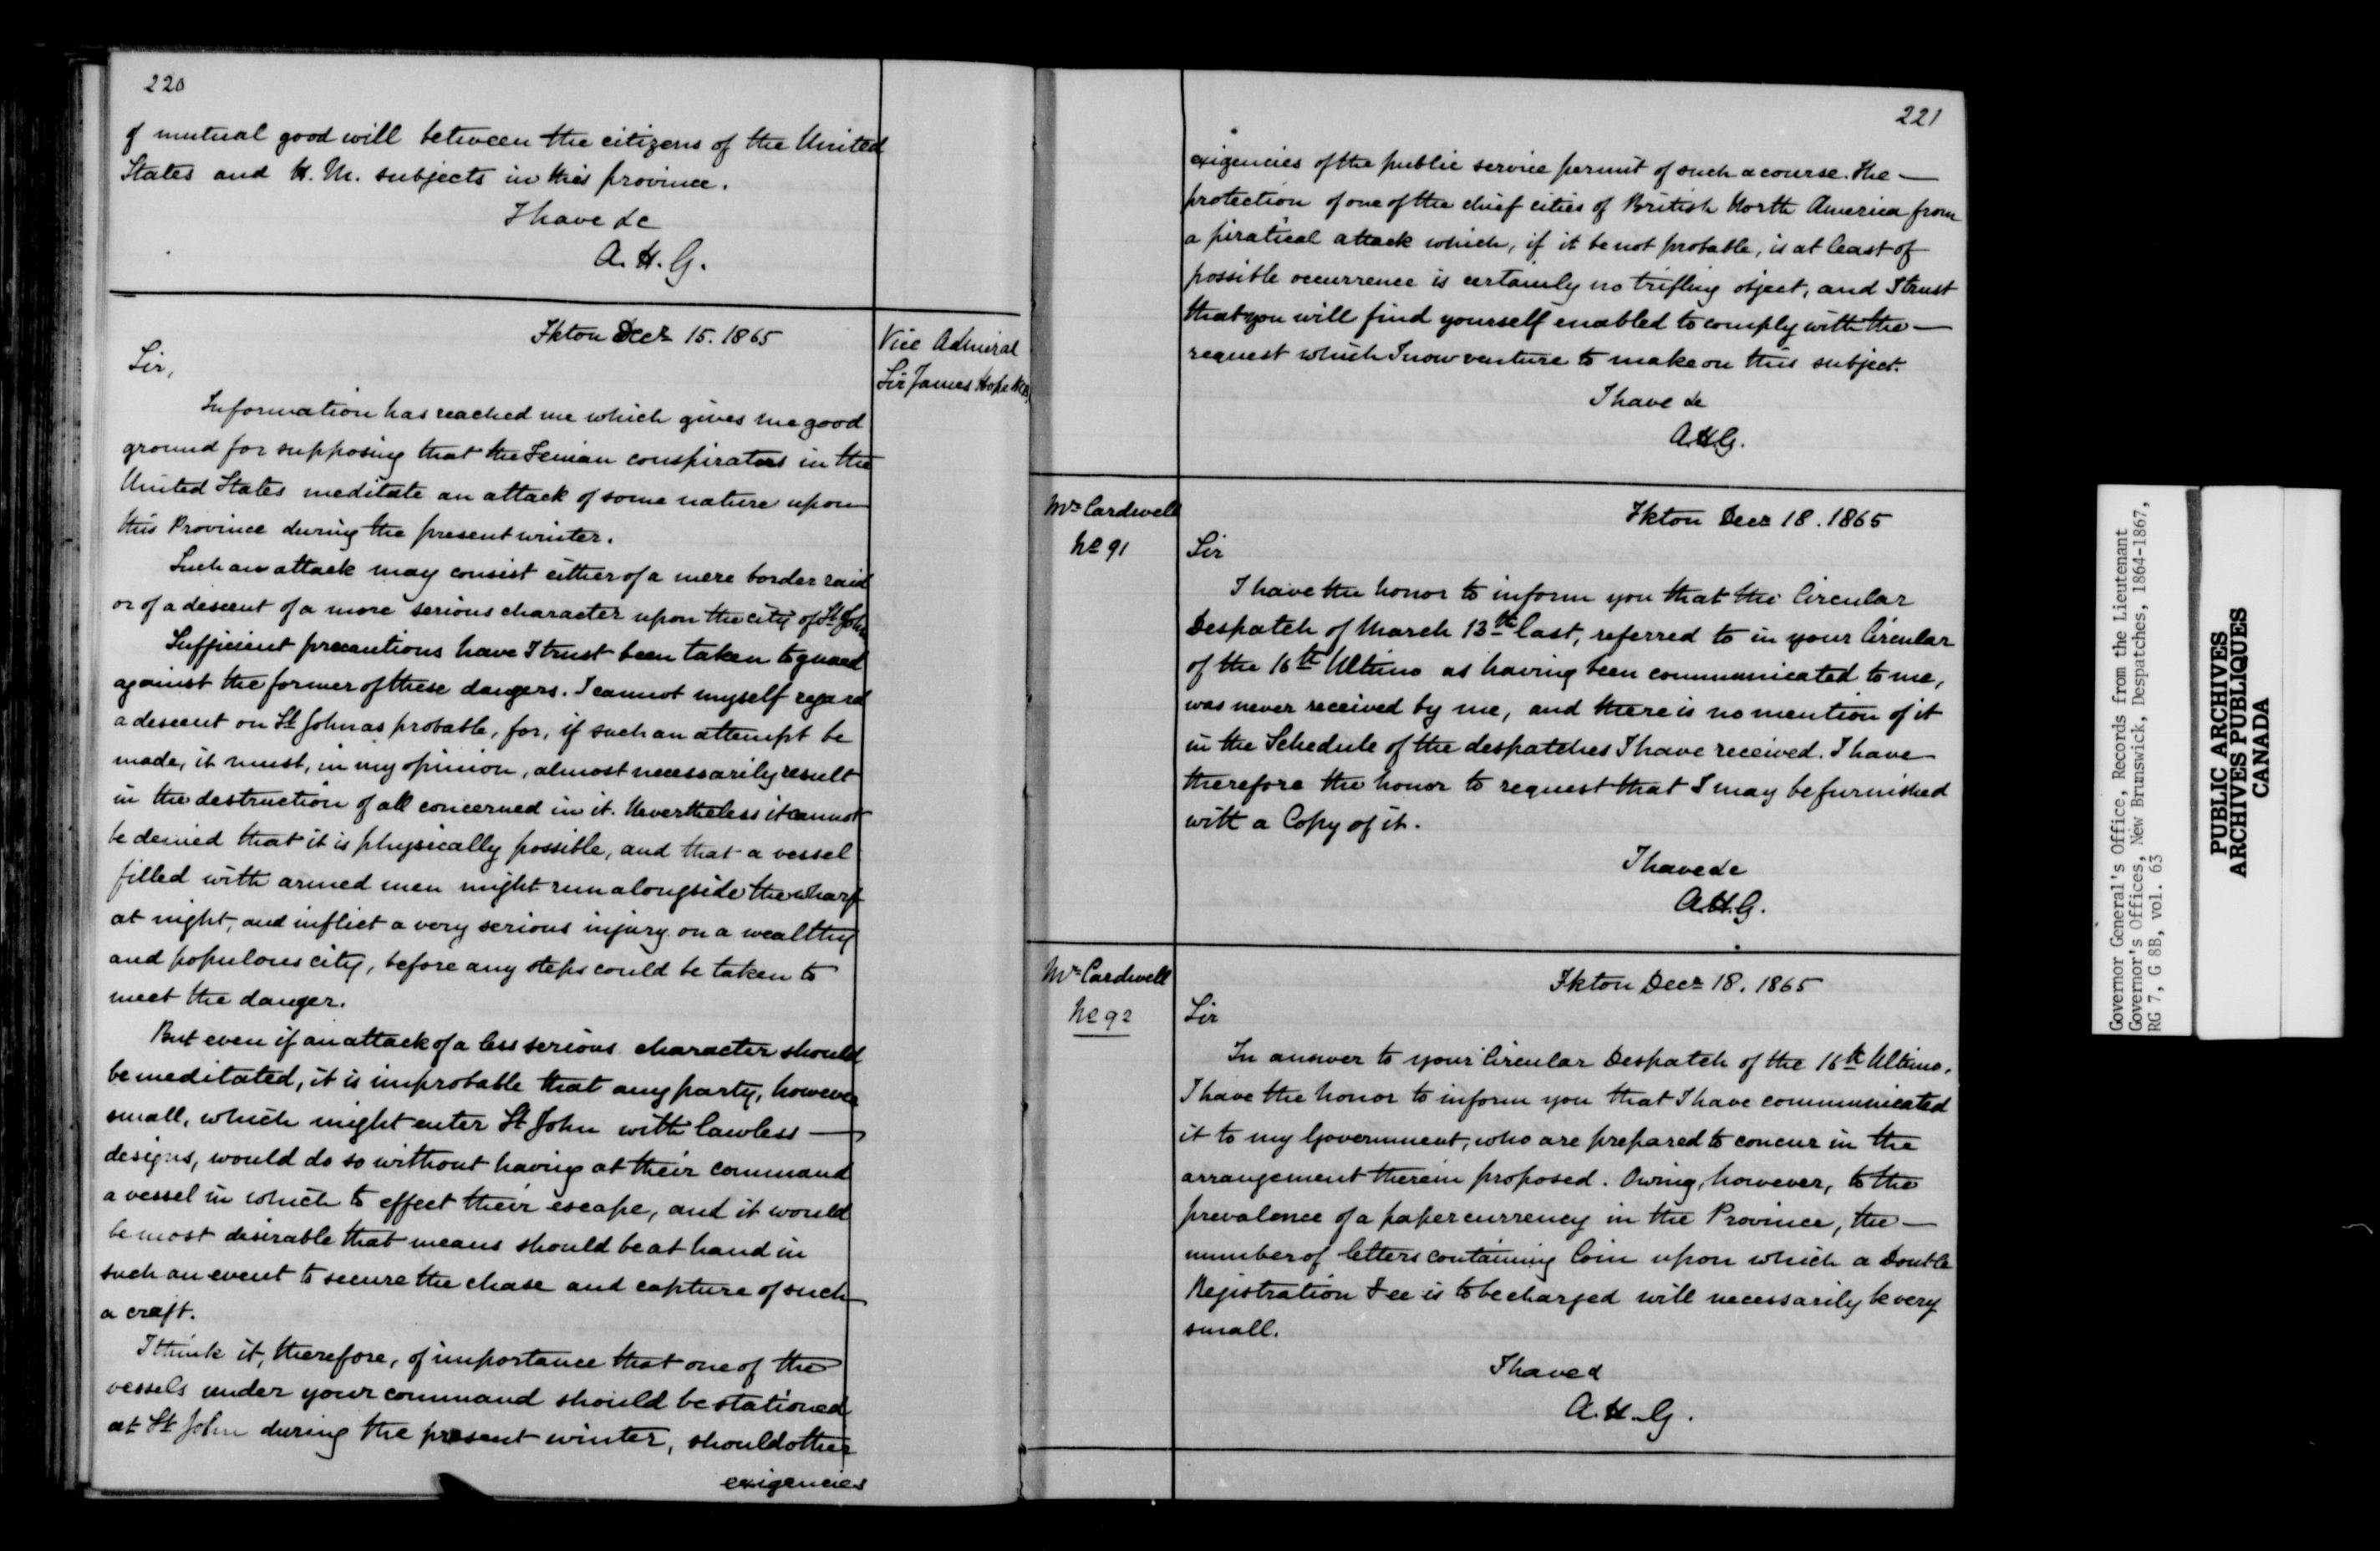 220
of mutual good will between the citizens of the United
States and H. M. subjects in this province.
I have &c
A. H. G.
Fkton Decr 15. 1865
Vice Admiral
Sir James Hope KCB
Sir,
Information has reached me which gives me good
ground for supposing that the Fenian conspirators in the
United States meditate an attack of some nature upon
this Province during the present winter.
Such an attack may consist either of a mere border raid
or of a descent of a more serious character upon the city of St John
Sufficient precautions have I trust been taken to guard
against the former of these dangers. I cannot myself regard
a descent on St John as probable, for, if such an attempt be
made, it must, in my opinion, almost necessarily result
in the destruction of all concerned in it. Nevertheless it cannot
be denied that it is physically possible, and that a vessel
filled with armed men might run alongside the wharf
at night, and inflict a very serious injury on a wealthy
and populous city, before any steps could be taken to
meet the danger.
But even if an attack of a less serious character should
be meditated, it is improbable that any party, however
small, which might enter St John with lawless —
designs, would do so without having at their command
a vessel in which to effect their escape, and it would
be most desirable that means should be at hand in
such an event to secure the chase and capture of such
a craft.
I think it, therefore, of importance that one of the
vessels under your command should be stationed
at St John during the present winter, should other
exigencies
221
exigencies of the public service permit of such a course. The —
protection of one of the chief cities of British North America from
a piratical attack which, if it be not probable, is at least of
possible occurrence is certainly no trifling object, and I trust
that you will find yourself enabled to comply with the —
request which I now venture to make on this subject.
I have &c
A.H.G.
Mr Cardwell
No 91
Fkton Decr 18. 1865
Sir
I have the honor to inform you that the Circular
Despatch of March 13th last, referred to in your Circular
of the 16th Ultimo as having been communicated to me,
was never received by me, and there is no mention of it
in the Schedule of the despatches I have received. I have
therefore the honor to request that I may be furnished
with a Copy of it.
I have &c
A.H.G.
Mr Cardwell
No 92
Fkton Decr 18. 1865
Sir
In answer to your Circular Despatch of the 16th Ultimo,
I have the honor to inform you that I have communicated
it to my Government, who are prepared to concur in the
arrangement therein proposed. Owing, however, to the
prevalence of a paper currency in the Province, the —
number of letters containing Coin upon which a Double
Registration Fee is to be charged will necessarily be very
small.
I have &
A. H. G.
Governor General's Office, Records from the Lieutenant
Governor's Offices, New Brunswick, Despatches, 1864-1867,
RG 7, G 8B, vol. 63
PUBLIC ARCHIVES
ARCHIVES PUBLIQUES
CANADA